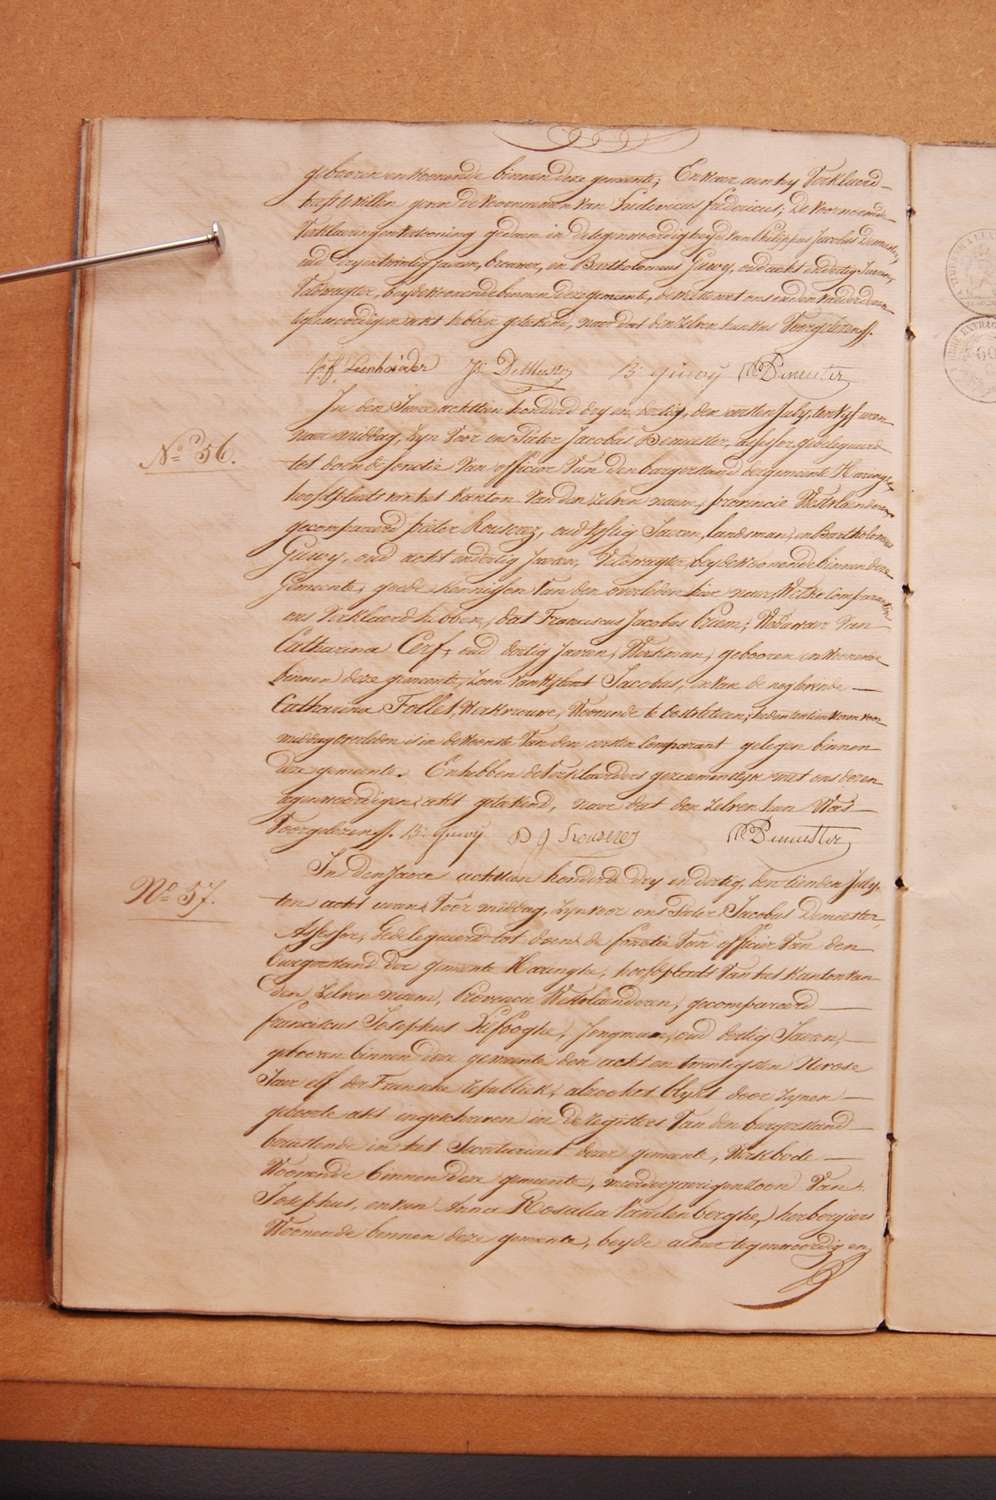 gebooren en woonende binnen deze gemeente; En waer aen hy Verklaerd
heeft te willen geven de voornaemen van Ludovicus fredericus; De voornoemde
Verklaering en Vertooning gedaen in de tegenwoordigheyd van Philippus Jacobus Demeester,
oud dry en twintig Jaeren, brouwer, en Bartholomeus Guwy, oud acht en dertig Jaeren,
Veldwagter, beyde woonende binnen deze gemeente, dewelke met ons en den vader deze
tegenwoordigen akt hebben geteekend, naer dat den zelven hun was Voorgelezen ff.
Leenhouder Demeester B. guwy Demeester
N.o 56.
In den Jaere achttien honderd dry en dertig, den eersten July, ten vyf uren
naer middag, zyn Voor ons Pieter Jacobus Demeester, assessor, gedelegueerd
tot doen de fonctie Van officier Van den burgerstand der gemeente Haringhe,
hoofdplaets van het Kanton Van den zelven naem, provincie Westvlaenderen,
gecompareerd pieter Rousseeg, oud Jaeren, landsman, en Bartholomeus
Guwy, oud acht en dertig Jaeren, Veldwagter, beyde woonende binnen deze
Gemeente, goede kennissen Van den overleden hier naer, Welke Comparanten
ons Verklaerd hebben, dat Franciscus Jacobus Cuem, Weduwaer Van
Catharina Cerf, oud dertig Jaeren, Werkman, gebooren en woonende
binnen deze gemeente, zoon van Jacobus, en van de nog levende
Catharina Follet, Werkvrouwe, Woonende te Oostvleteren, heden ten tien uren voor
middag overleden is in de wooneste Van den eersten Comparant gelegen binnen
deze gemeente. En hebben de Verklaerders gezamentlyk met ons dezen
tegenwoordigen akt geteekend, naer dat den zelven hun Was
Voorgelezen ff. B. guwy P J Demeester
N.o 57.
In den Jaere achttien honderd dry en dertig, den tienden July,
ten acht uren Voor middag, zyn voor ons Pieter Jacobus Demeester,
Assessor, Gedelegueerd tot doen de fonctie Van officier Van den
Burgerstand der gemeente Haringhe, hoofdplaets Van het Kanton van
den zelven naem, Provincie Westvlaenderen, gecompareerd
franciscus Josephus Defooghe, Jongman, oud dertig Jaeren,
gebooren binnen deze gemeente den acht en twintigsten Nivose
Jaer elf der Fransche republiek, alzoo het blykt door zynen
geboorte akt ingeschreven in de registers Van den burgerstand
berustende in het Secretariaet dezer gemeente, Werkbode
Woonende binnen deze gemeente, meerderjaerigen zoon Van
Josephus, en van Anna Rosalia Vandenberghe, herbergiers
Woonende binnen deze gemeente, beyde alhier tegenwoordig en